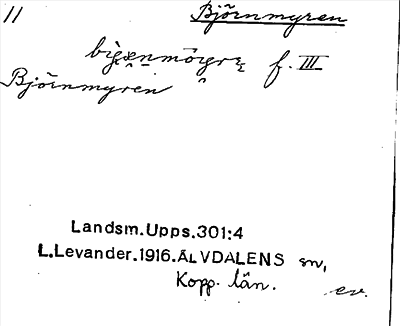 11 Björnmyren
f. III
Björnmyren
Landsm.Upps.301:4
L.Levander.1916.ÄLVDALENS sn,
Kopp. län.
ev.